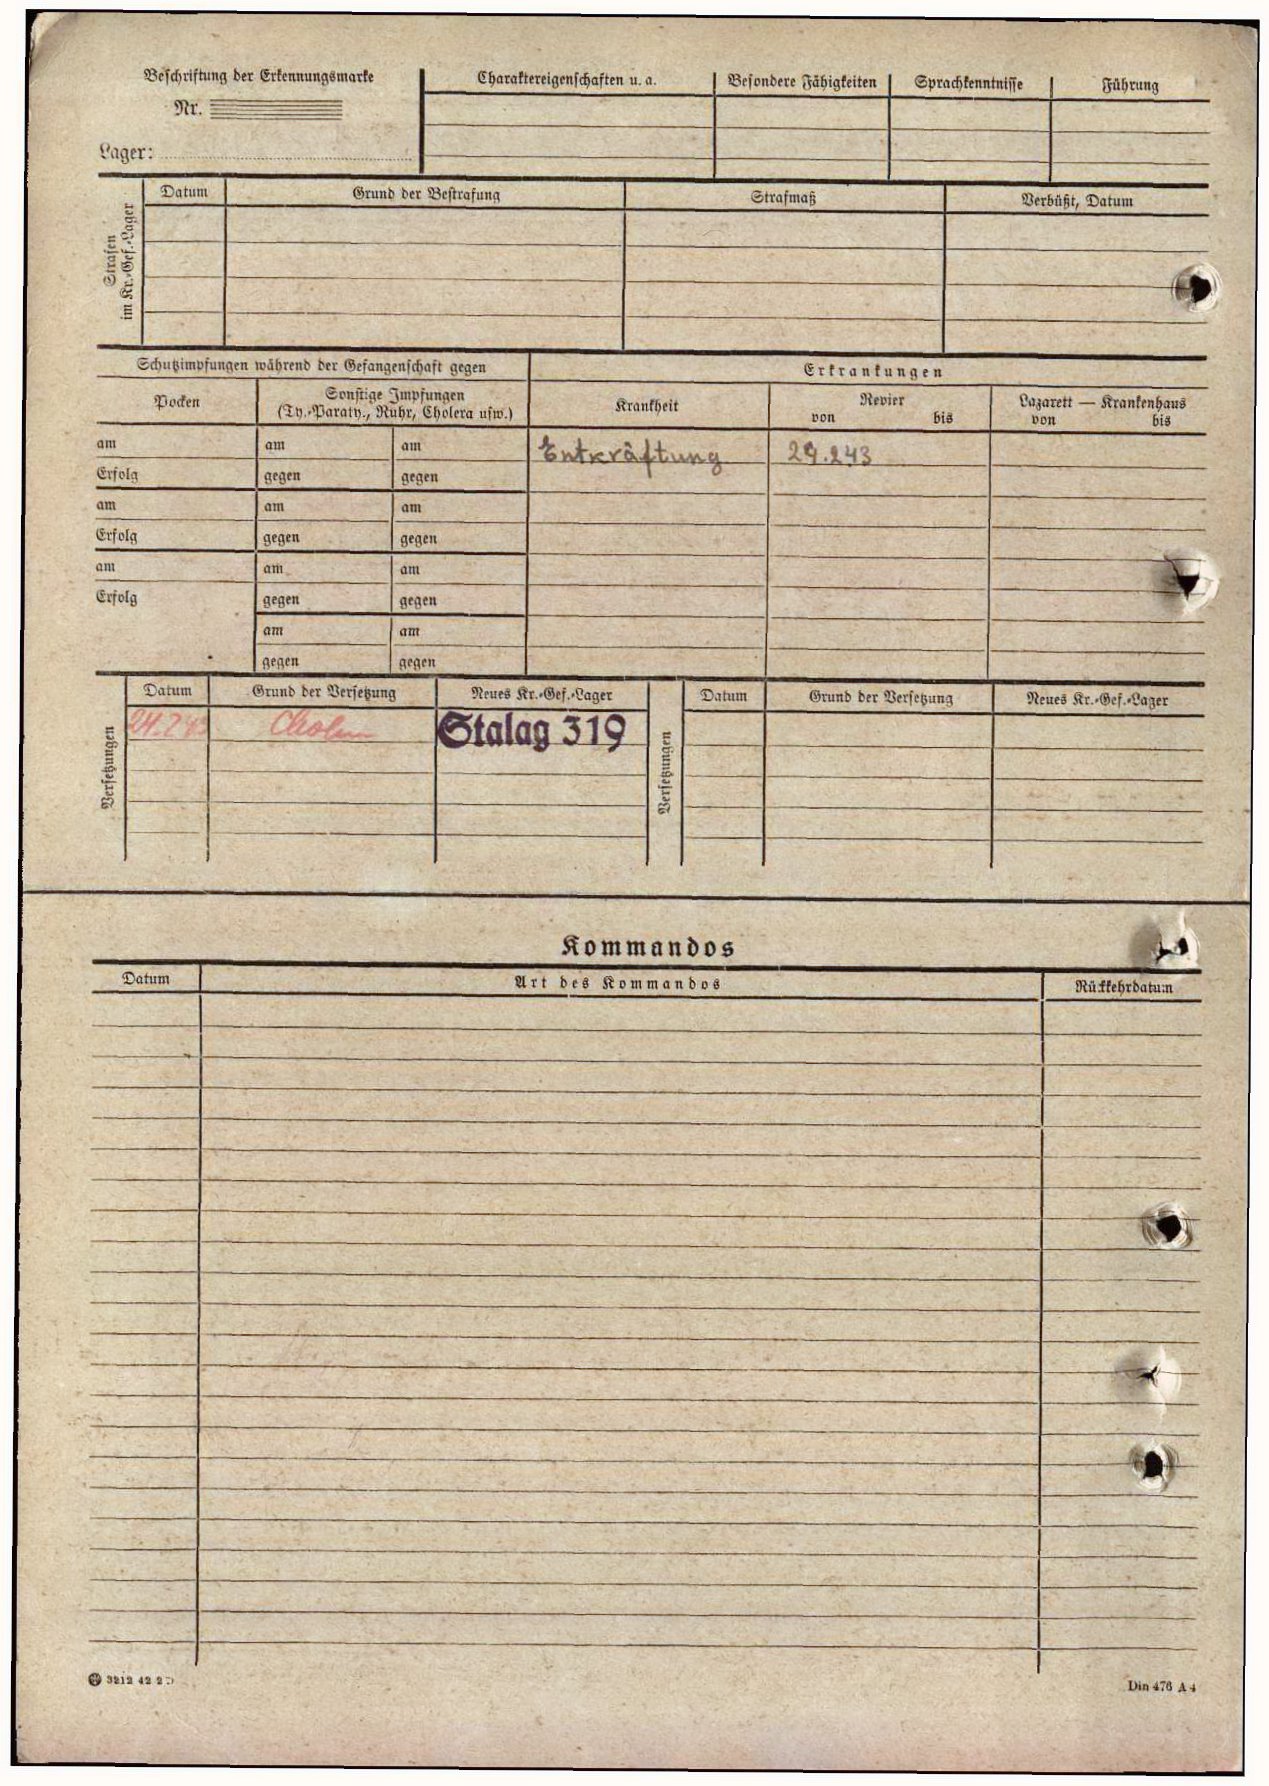 Beschriftung der Erkennungsmarke
Nr.
Lager:
Charaktereigenschaften u. a.
Besondere Fähigkeiten
Sprachkenntnisse
Führung
Strafen
im Kr.-Gef.-Lager
Datum
Grund der Bestrafung
Strafmaß
Verbüßt, Datum
Schutzimpfungen während der Gefangenschaft gegen
Erkrankungen
Pocken
Sonstige Impfungen
(Ty.-Paraty., Ruhr, Cholera usw.)
Krankheit
Revier
von bis
Lazarett — Krankenhaus
von bis
am am am
Entkräftung
Erfolg gegen gegen
am am am
Erfolg gegen gegen
am am am
Erfolg gegen gegen
am am
gegen gegen
Versetzungen
Datum Grund der Versetzung Neues Kr.-Gef.-Lager
Cholm Stalag 319
Versetzungen
Datum Grund der Versetzung Neues Kr.-Gef.-Lager
Kommandos
Datum Art des Kommandos Rückkehrdatum
3212 42 2
Din 476 A 4